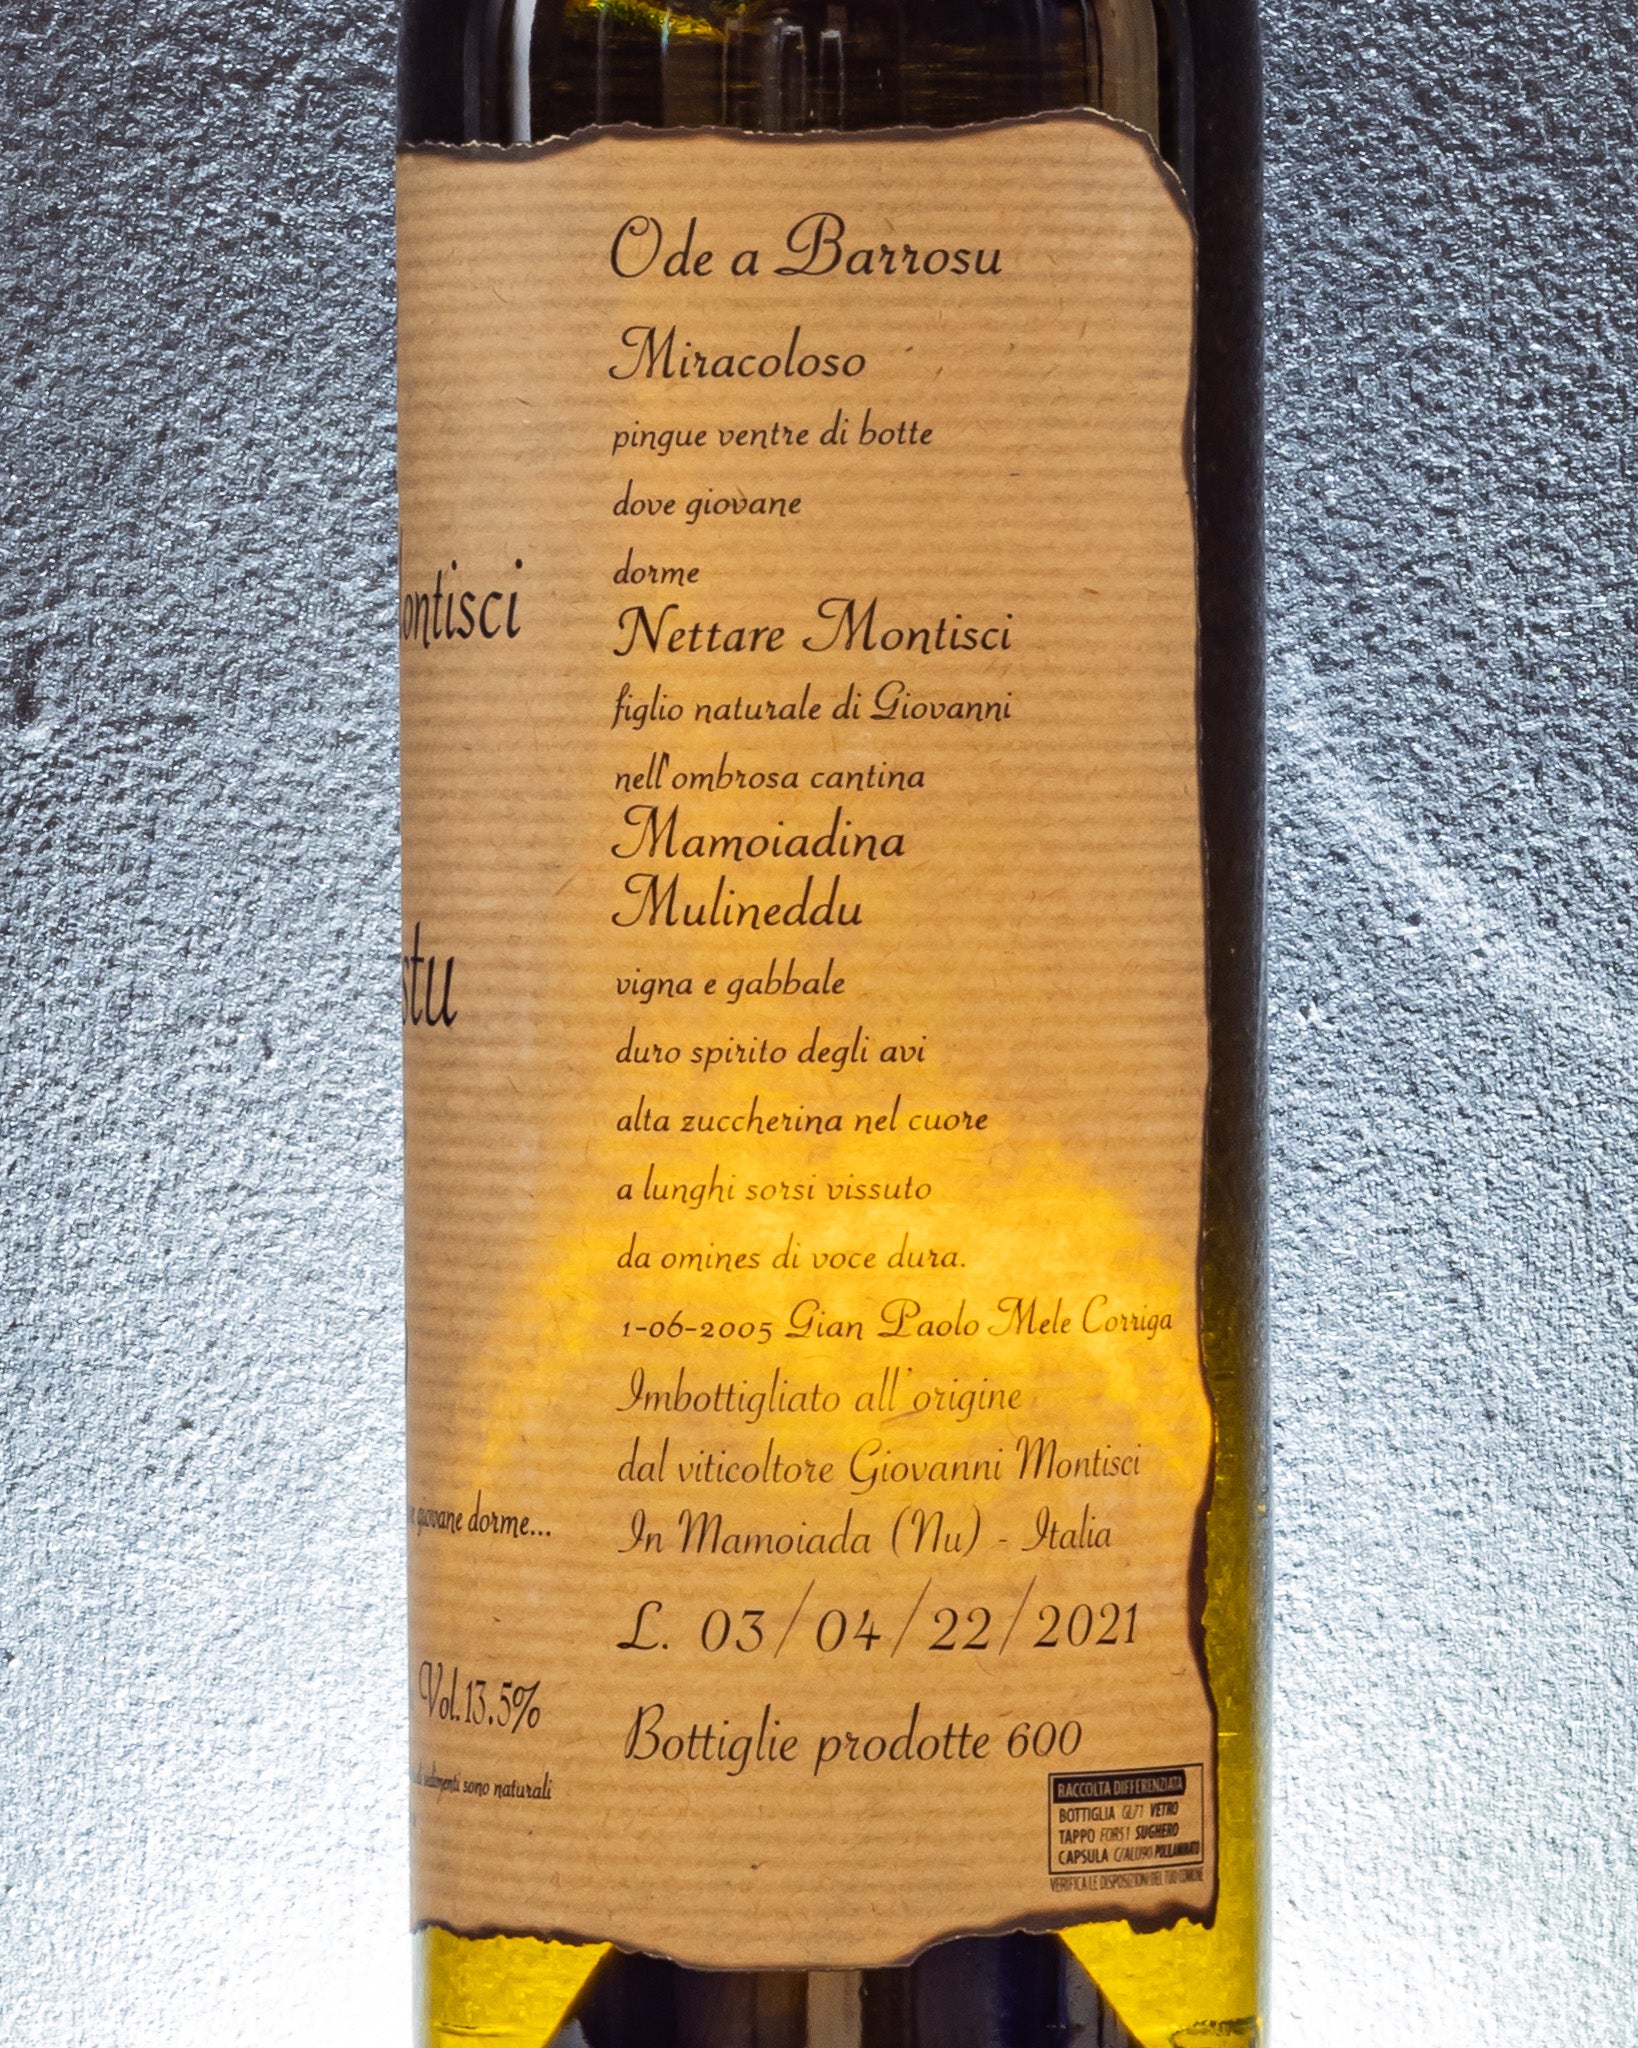 Ode a Barrosu
Miracoloso
pingue ventre di botte
dove giovane
dorme
Nettare Montisci
figlio naturale di Giovanni
nell'ombrosa cantina
Mamoiadina
Mulineddu
vigna e gabbale
duro spirito degli avi
alta zuccherina nel cuore
a lunghi sorsi vissuto
da omines di voce dura.
1-06-2005 Gian Paolo Mele Corriga
Imbottigliato all'origine
dal viticoltore Giovanni Montisci
In Mamoiada (Nu) - Italia
L. 03/04/22/2021
Bottiglie prodotte 600
RACCOLTA DIFFERENZIATA
BOTTIGLIA GL71 VETRO
TAPPO FOR51 SUGHERO
CAPSULA C/ALU90 POLILAMINATO
VERIFICA LE DISPOSIZIONI DEL TUO COMUNE
ontisci
stu
giovane dorme...
Vol.13.5%
sedimenti sono naturali